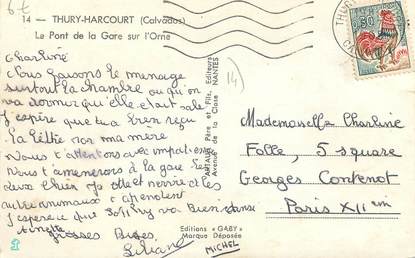 6€
14 — THURY-HARCOURT (Calvados)
Le Pont de la Gare sur l'Orne
Charline
Nous faisons le menage
surtout la chambre ou qu'on
va dormir que elle etait sale
J'espère que tu a bien reçu
la lettre par ma mère
Nous t'attendons avec impatience
Nous t'amenerons à la gare les
deux chien
autre animaux t'apenolent
J'espere que va Bien danse
grosses Bises
Liliane
MICHEL
ARTAUD Père et Fils, Editeurs
Avenue de la Close NANTES
14
Editions "GABY"
Marque Déposée
THU
0.30
Mademoiselle Charline
Folle, 5 square
Georges Contenot
Paris XII em
1